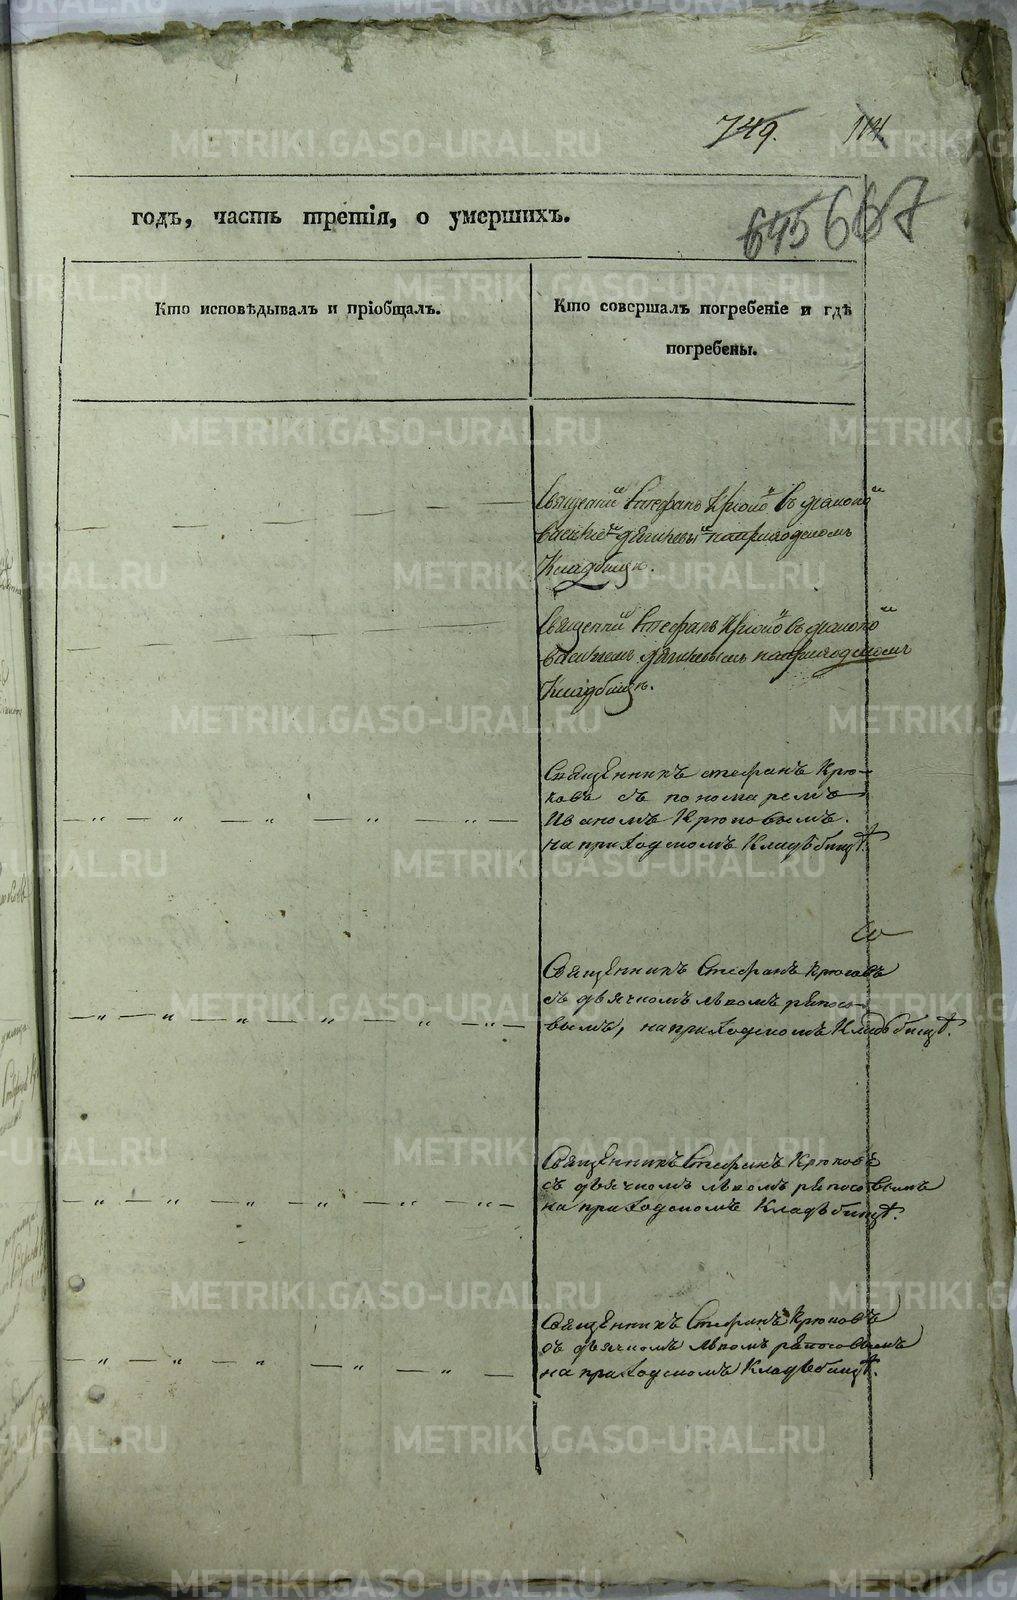 749. 114.
645 667
годъ, часть третія, о умершихъ.
Кто исповѣдывалъ и пріобщалъ.
Кто совершалъ погребеніе и гдѣ
погребены.
Священ Стефанъ Крюко съ
на приходскомъ
Кладбищѣ.
Священ Стефанъ Крюко съ
на приходскомъ
Кладбищѣ.
Священникъ Стефанъ Крю-
ковъ съ пономаремъ
Иваномъ Крюковымъ.
на приходскомъ Кладъбищѣ.
Священникъ Стефанъ Крюковъ
съ дьячкомъ Львомъ Репосо-
вымъ, на приходскомъ Кладъбищѣ.
Священникъ Стефанъ Крюковъ
съ дьячкомъ Львомъ Репосовымъ
на приходскомъ Кладъбищѣ.
Священникъ Стефанъ Крюковъ
съ дьячкомъ Львомъ Репосовымъ
на приходскомъ Кладъбищѣ.
METRIKI.GASO-URAL.RU